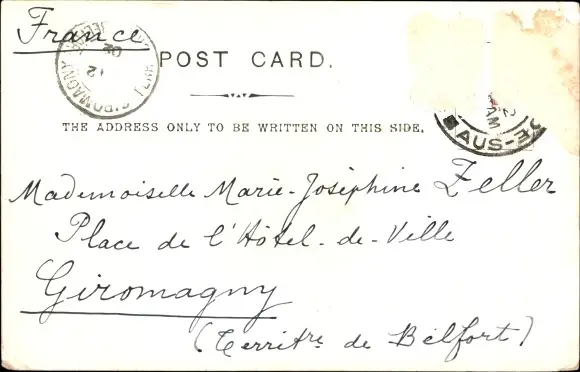 France
POST CARD.
THE ADDRESS ONLY TO BE WRITTEN ON THIS SIDE.
GIROMAGNY
02
12
AM
2
AUS-DE
Mademoiselle Marie-Joséphine Zeller
Place de l'Hôtel-de-Ville
Giromagny
(Territre de Belfort)